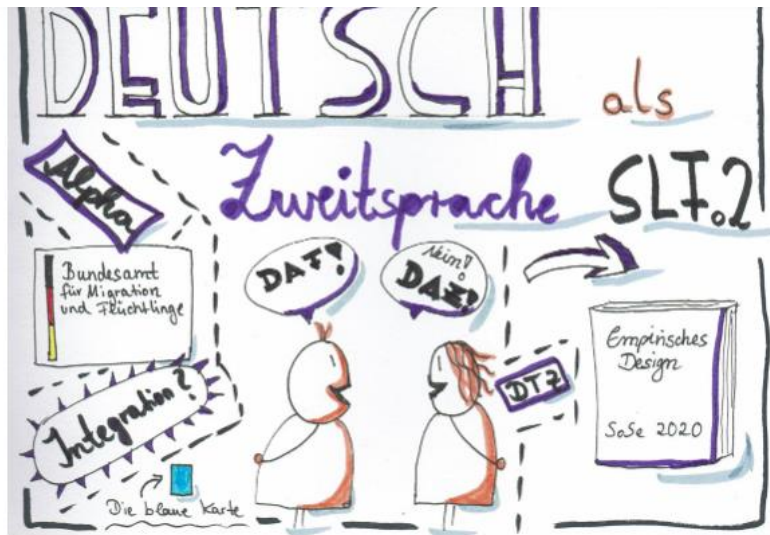 DEUTSCH als
Zweitsprache SLF.2
Alpha
Bundesamt
für Migration
und Flüchtlinge
Integration?
Die blaue Karte
DAF!
Nein!
DAZ!
DTZ
Empirisches
Design
SoSe 2020